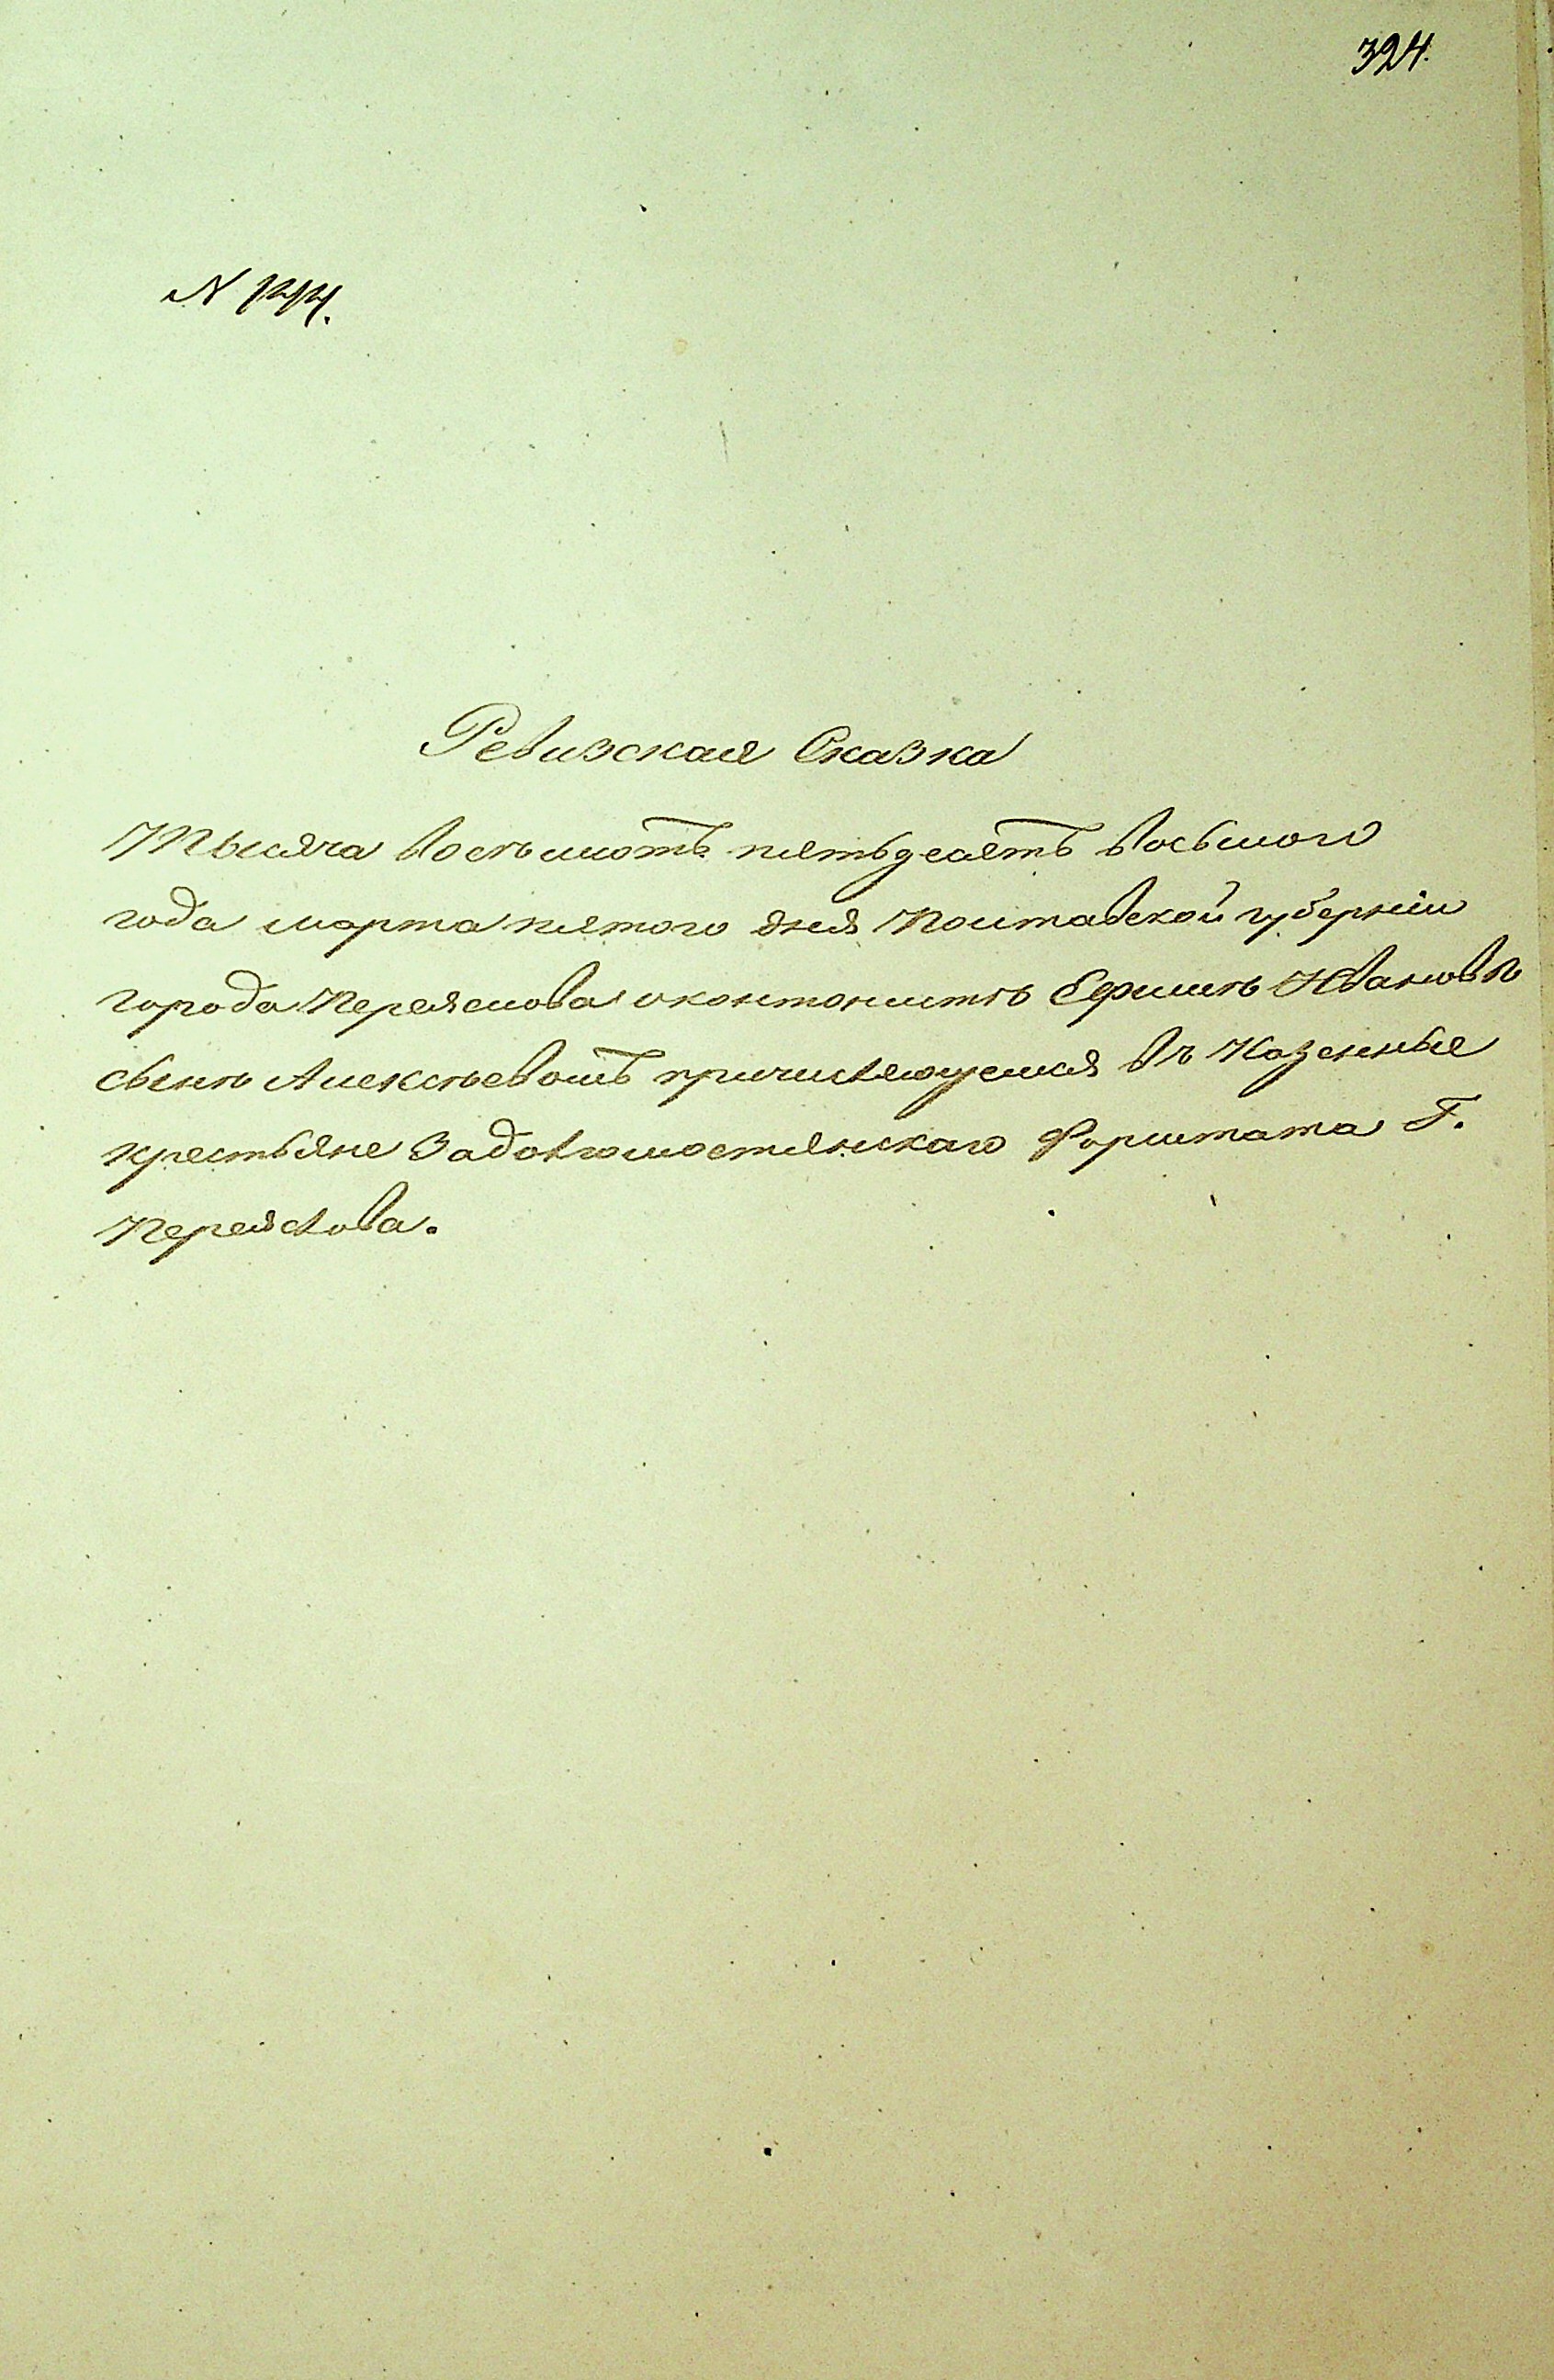 324.
N 144.
Ревизская Сказка
Тысяча восемьсотъ пятьдесятъ восьмого
года марта пятого дня Полтавской губерніи
города Переяслова о кантонистѣ Ефимѣ Ивановѣ
сынѣ Алексѣевомъ причисляющемся въ Казенные
крестьяне Задолгомостянскаго Форштата Г.
Переяслова.